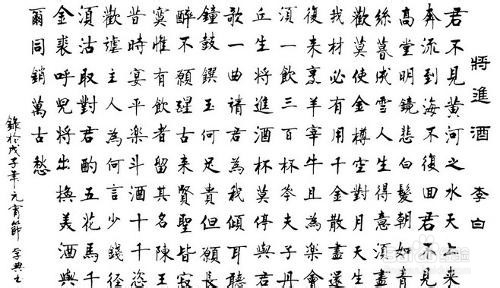 將進酒 李白
君不見黃河之水天上來
奔流到海不復回君不見
高堂明鏡悲白髮朝如青
絲暮成雪人生得意須盡
歡莫使金樽空對月天生
我材必有用千金散盡還
復來烹羊宰牛且為樂會
須一飲三百杯岑夫子丹
丘生將進酒杯莫停與君
歌一曲請君為我傾耳聽
鐘鼓饌玉何足貴但願長
醉不願醒古來賢聖皆寂
寞惟有飲者留其名陳王
昔時宴平樂斗酒十千恣
歡謔主人為何言少錢徑
須沽取對君酌五花馬千
金裘呼兒將出換美酒與
爾同銷萬古愁
錄於戊子年元宵節